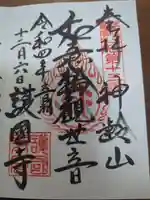 奉拝
神齢山
如意輪観世音
令和四年
十二月六日
護國寺